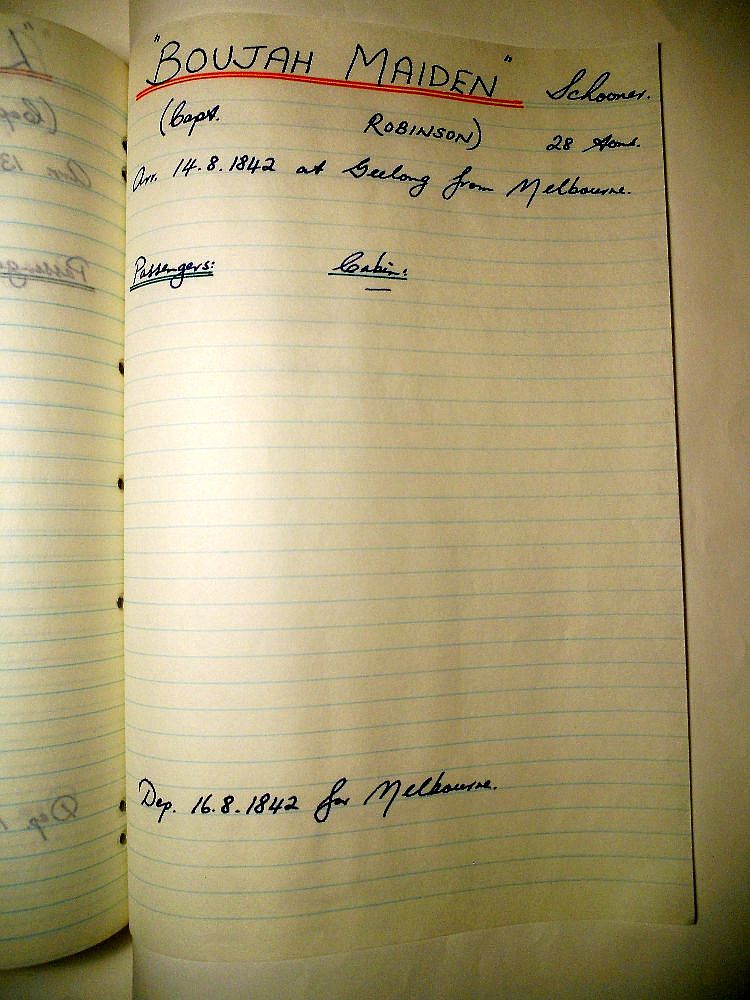 "BOUJAH MAIDEN" Schooner.
(Capt. ROBINSON) 28 tons.
Arr. 14.8.1842 at Geelong from Melbourne.
Passengers: Cabin:
—
Dep. 16.8.1842 for Melbourne.